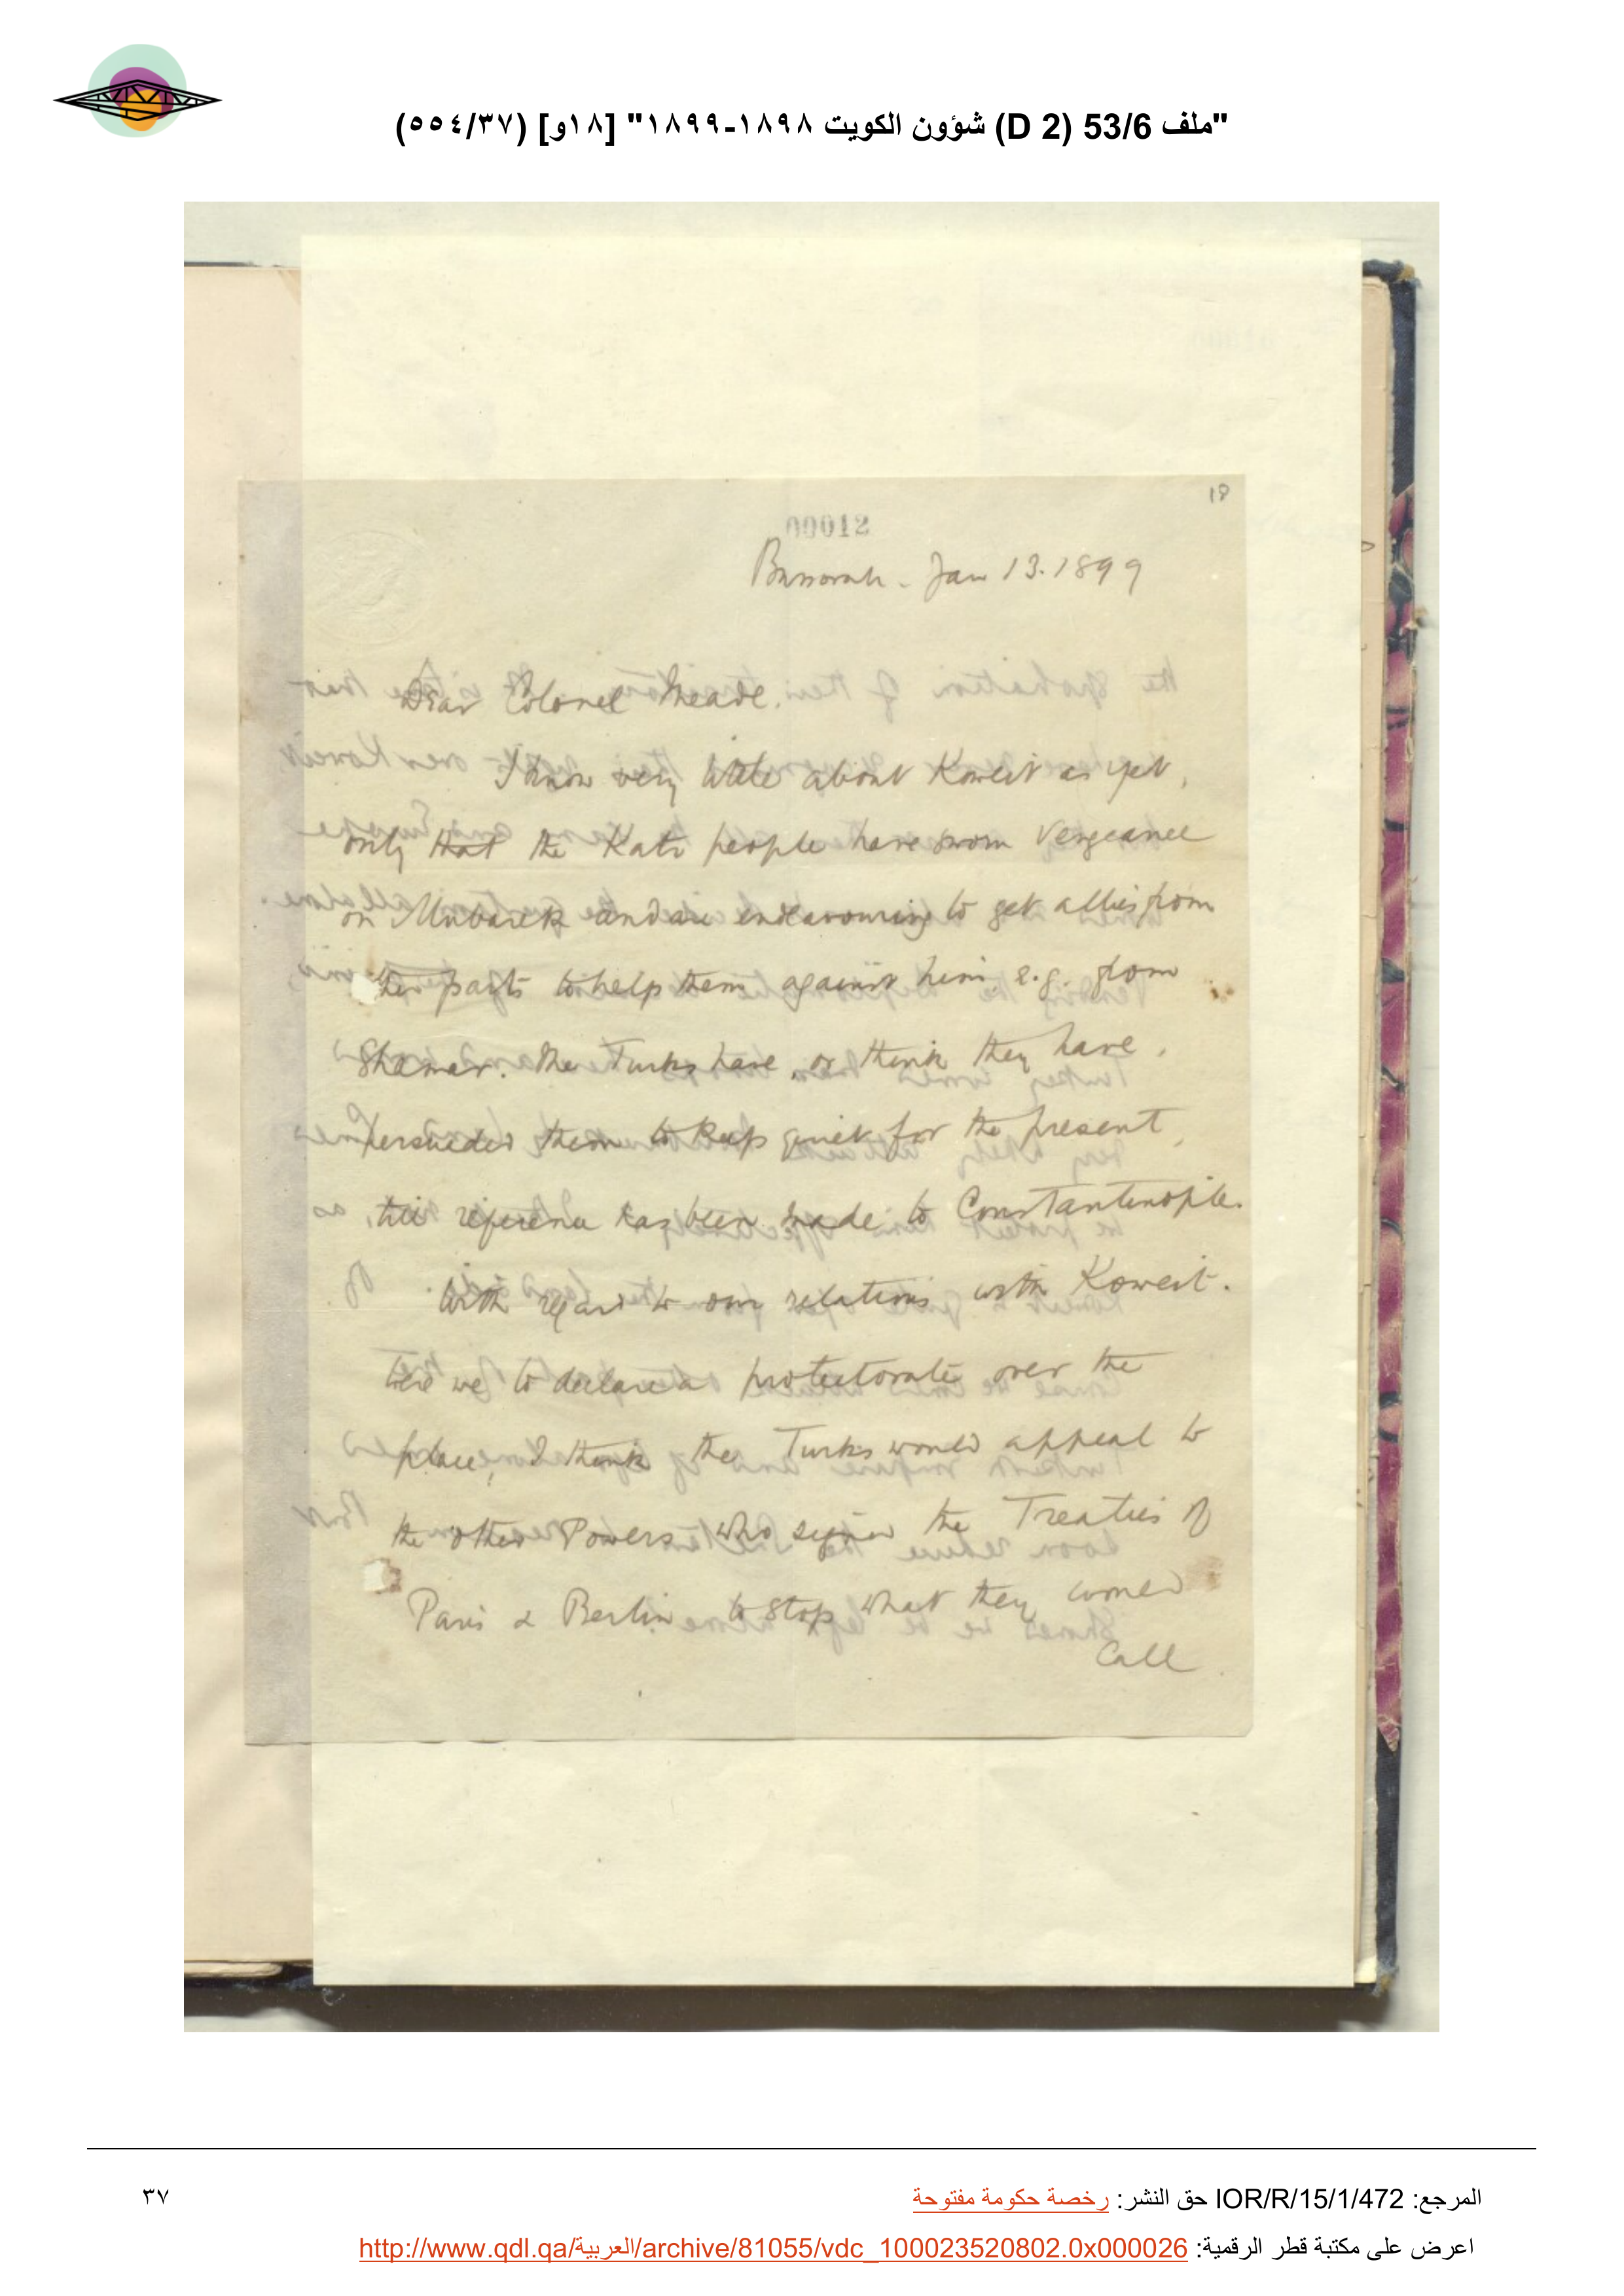 "ملف 53/6 (D 2) شؤون الكويت ١٨٩٨-١٨٩٩" [١٨و] (٥٥٤/٣٧)
18
00012
Bussorah - Jan 13. 1899
Dear Colonel Meade.
I know very little about Koweit as yet,
only that the people have sworn vengeance
on Mubarek and are endeavouring to get allies from
other parts to help them against him e.g. from
Shamar. The Turks have, or think they have,
persuaded them to keep quiet for the present,
till reference has been made to Constantinople.
With regard to our relations with Koweit.
Were we to declare a protectorate over the
place, I think the Turks would appeal to
the other Powers who signed the Treaties of
Paris & Berlin to stop what they would
call
المرجع: IOR/R/15/1/472 حق النشر: رخصة حكومة مفتوحة
٣٧
اعرض على مكتبة قطر الرقمية: http://www.qdl.qa/العربية/archive/81055/vdc_100023520802.0x000026